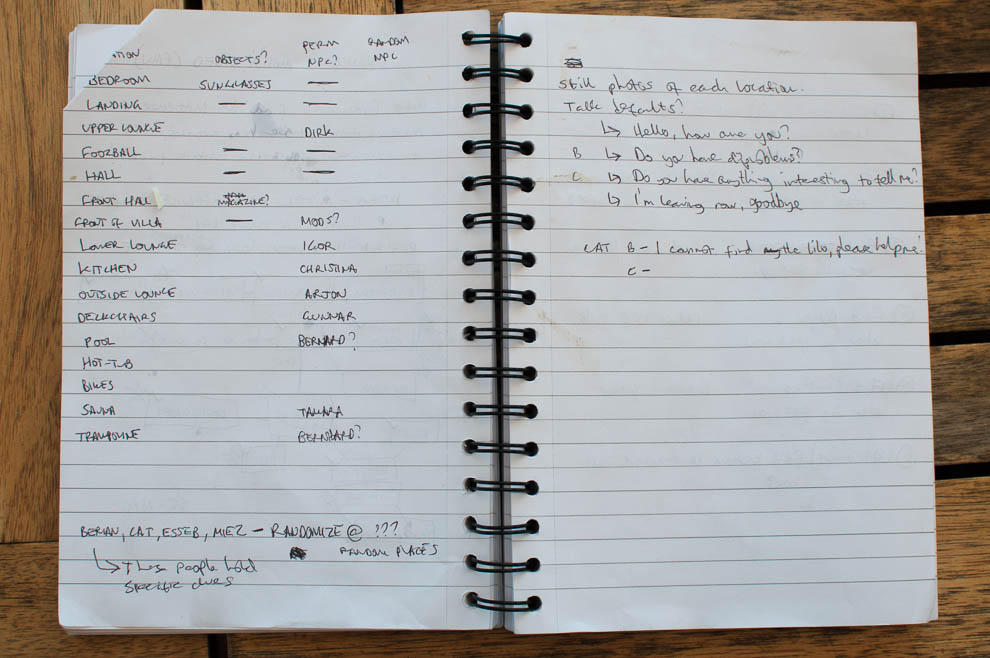 PERM RANDOM
TION OBJECTS? NPC? NPC
BEDROOM SUNGLASSES —
LANDING — —
UPPER LOUNGE DIRK
FOOZBALL — —
HALL — —
FRONT HALL MAGAZINE?
FRONT OF VILLA — MODS?
LOWER LOUNGE IGOR
KITCHEN CHRISTINA
OUTSIDE LOUNGE ARJON
DECKCHAIRS GUNNAR
POOL BERNARD?
HOT-TUB
BIKES
SAUNA TAMARA
TRAMPOLINE BERNHARD?
BERIAN, CAT, ESSEB, MIEZ — RANDOMIZE @ ???
RANDOM PLACES
↳ These people hold
specific clues
Still photos of each location.
Talk defaults?
↳ Hello, how are you?
B ↳ Do you have any problems?
C ↳ Do you have anything interesting to tell me?
↳ I'm leaving now, goodbye
CAT B – I cannot find the lilo, please help me!
C –